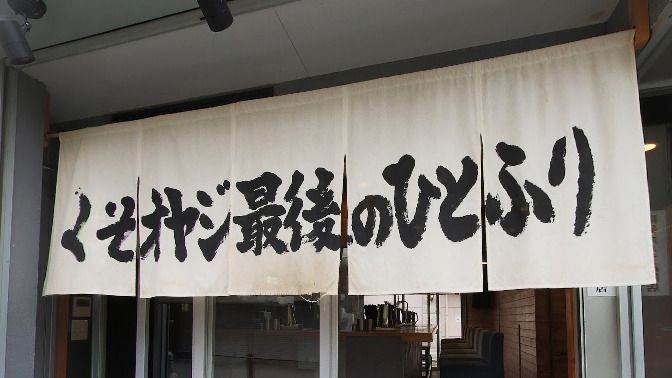 くそオヤジ最後のひとふり
店